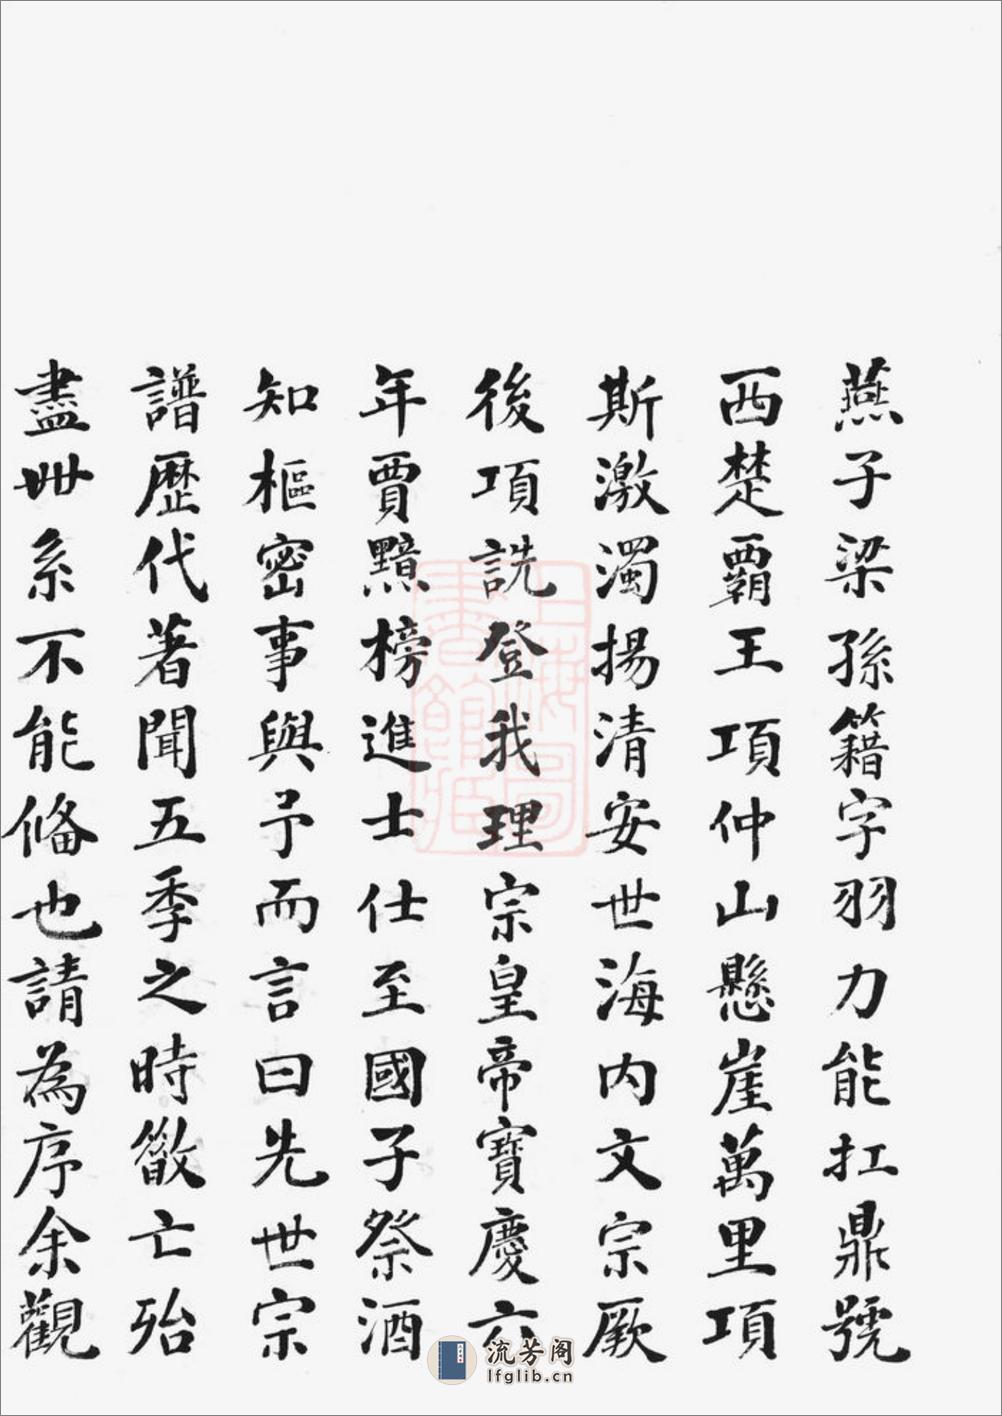 燕子梁孫籍字羽力能扛鼎號
西楚覇王項仲山懸崖萬里項
斯激濁揚清安世海内文宗厥
後項詵登我理宗皇帝寳慶六
年賈黯榜進士仕至國子祭酒
知樞密事與予而言曰先世宗
譜歴代著聞五季之時散亡殆
盡丗系不能俻也請為序余觀
上海圖書館藏
流芳阁
lfglib.cn